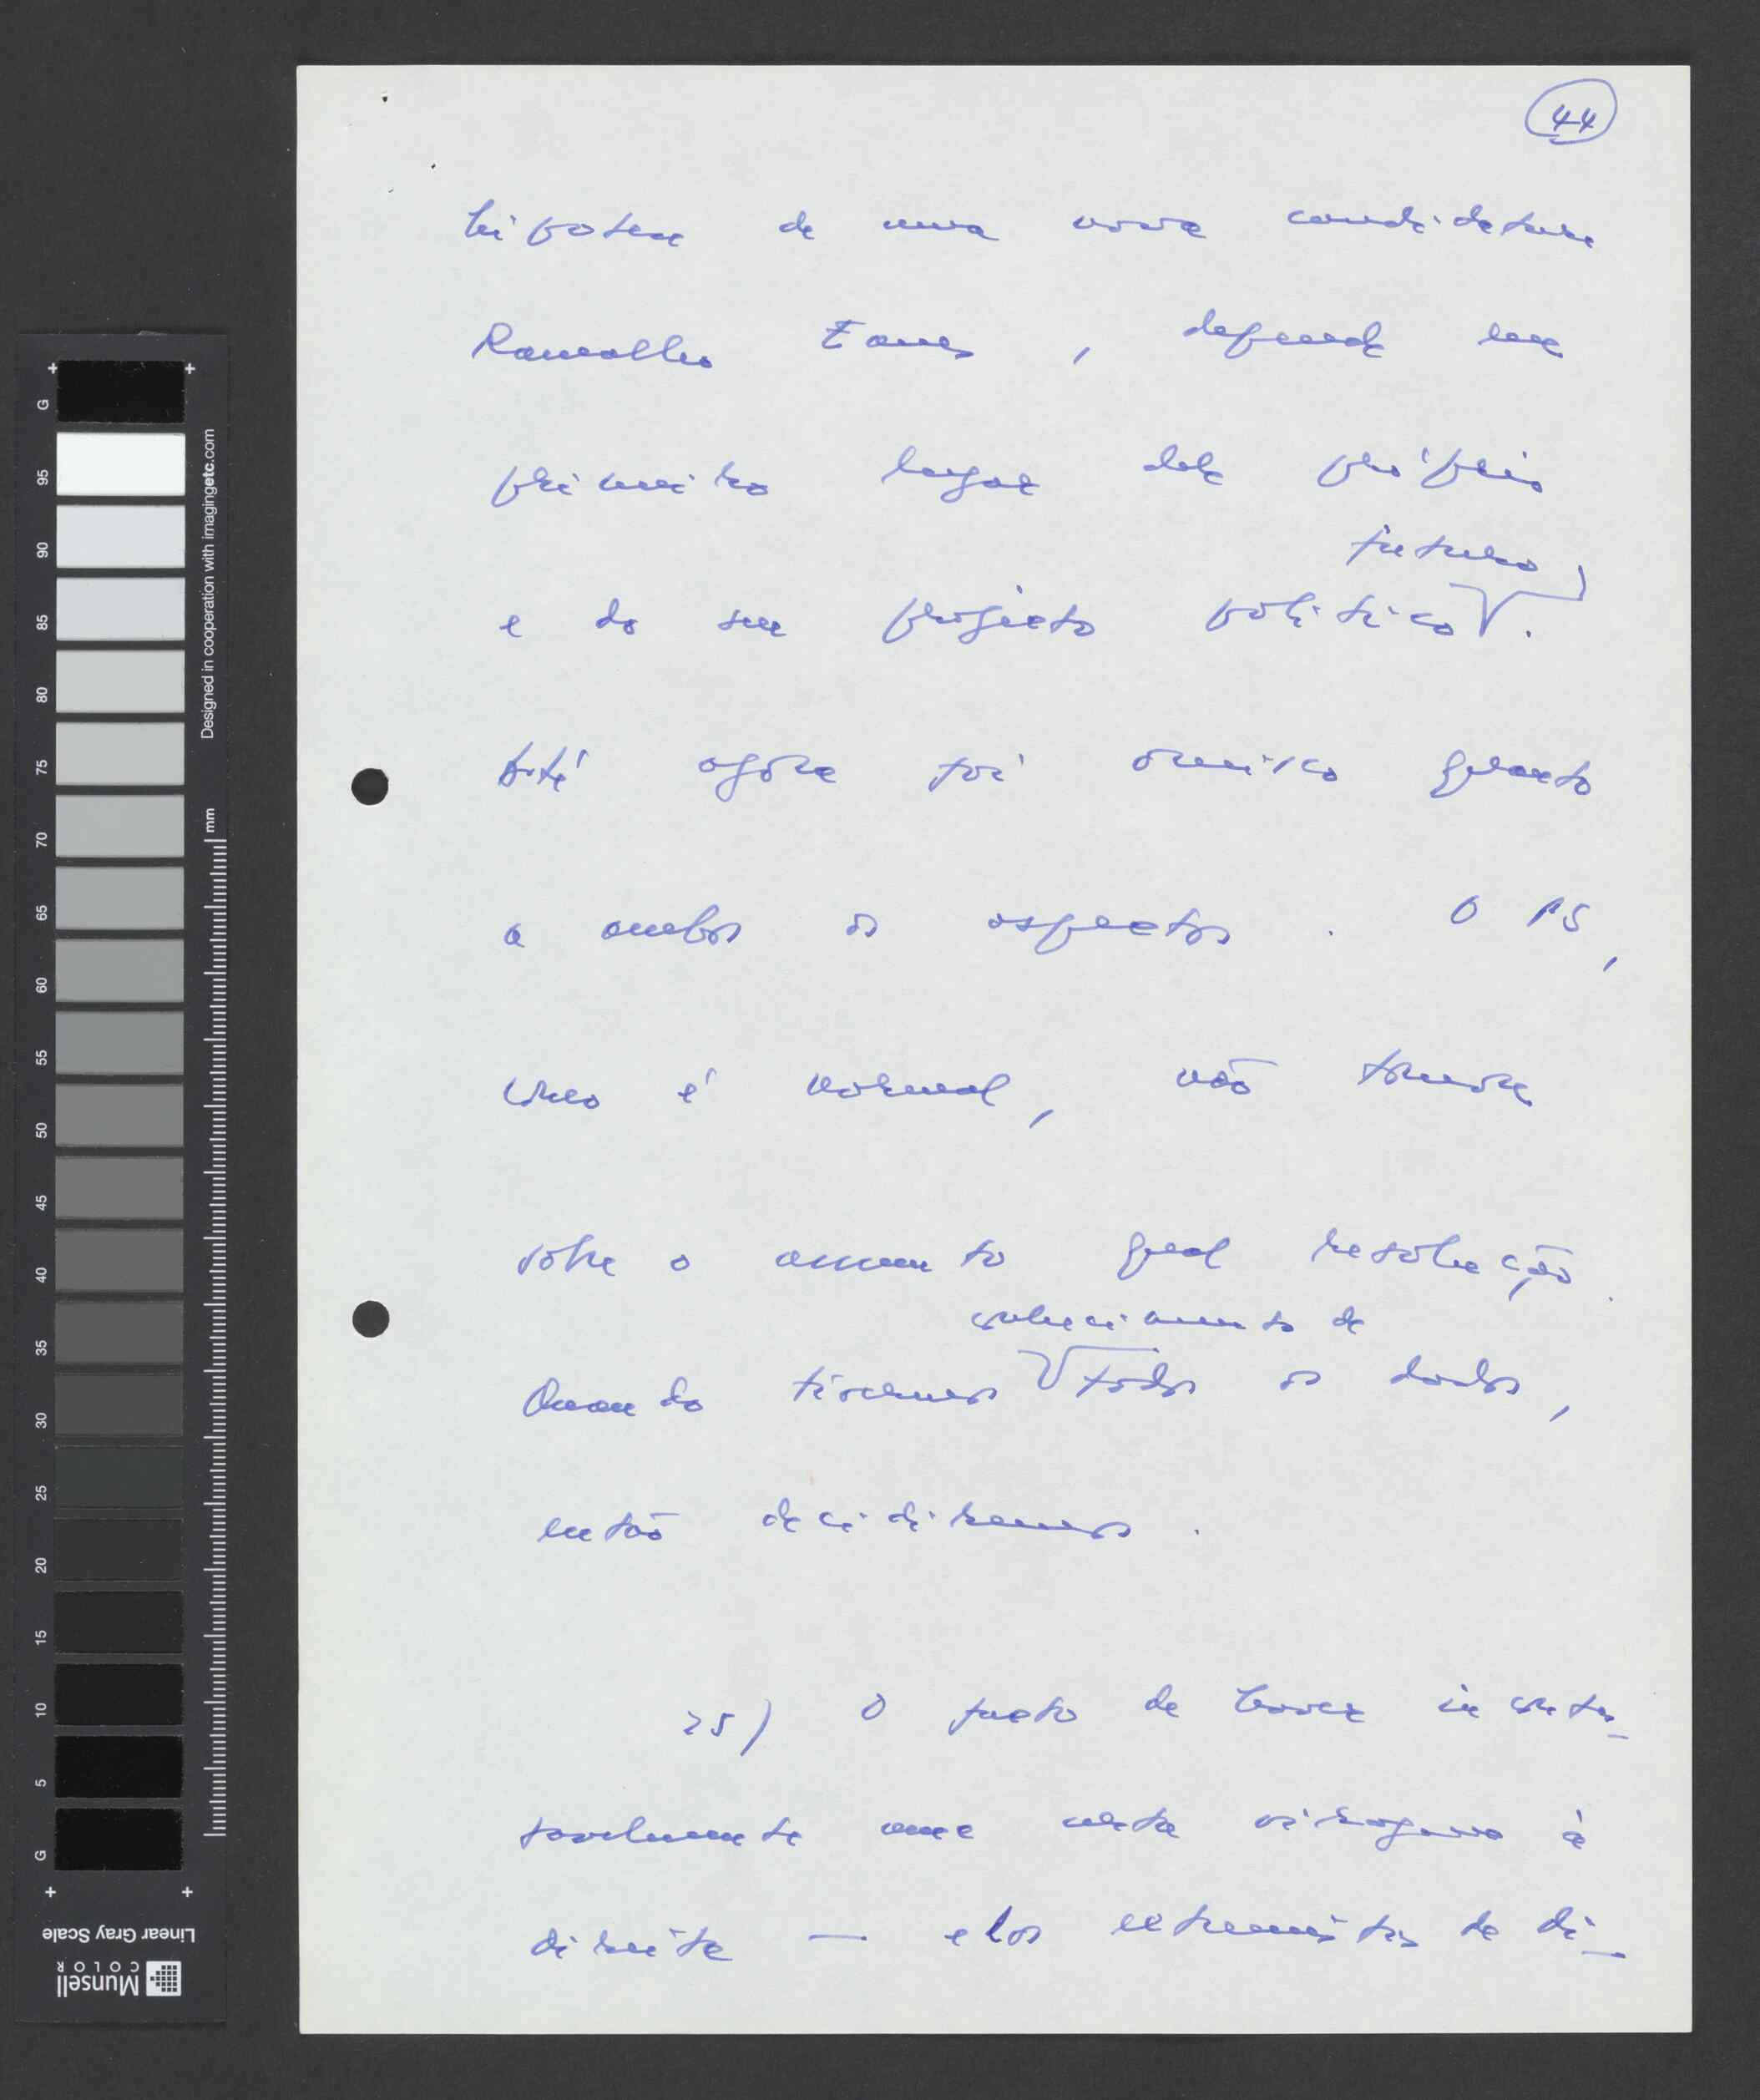 44
hipótese de uma nova candidatura
Ramalho Eanes, depende em
primeiro lugar dele próprio
futuro,
e do seu projecto político.
Até agora foi omisso quanto
a ambos os aspectos. O PS,
como é normal, não tomou
sobre o assunto qual resolução.
conhecimento de
Quando tivermos todos os dados,
então decidiremos.
25) O facto de haver incontes-
tavelmente uma certa viragem à
direita — e dos extremistas de di-
G
95
90
85
80
75
70
65
60
55
50
45
40
35
30
25
20
15
10
5
G
Designed in cooperation with imagingetc.com
mm
Linear Gray Scale
Munsell
COLOR